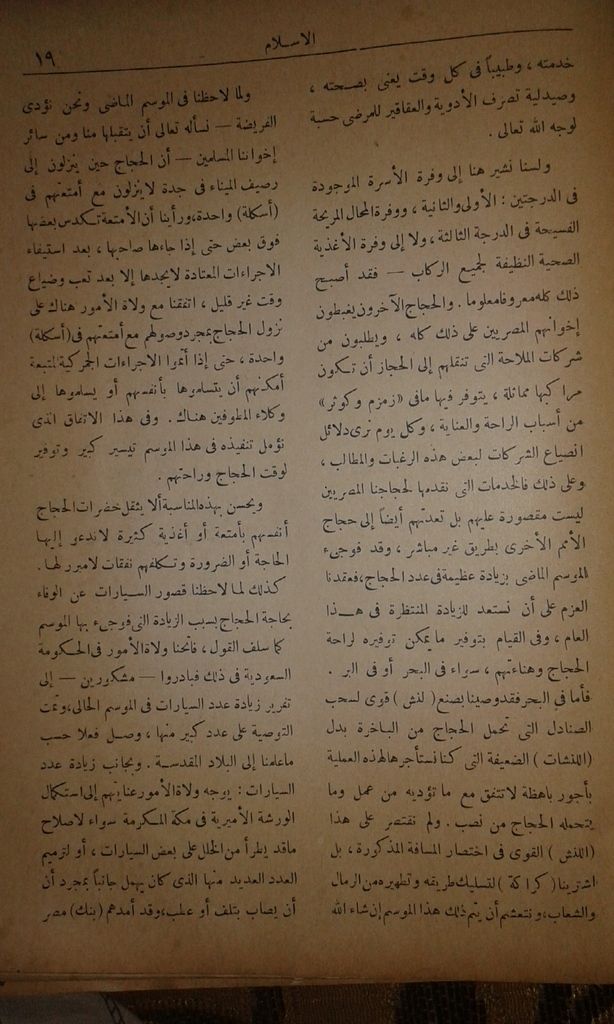 الاسلام
١٩
خدمته ، وطبيباً فى كل وقت يعنى بصحته ،
وصيدلية تصرف الأدوية والعقاقير للمرضى حسبة
لوجه الله تعالى .
ولسنا نشير هنا إلى وفرة الأسرة الموجودة
فى الدرجتين : الأولى والثانية ، ووفرة المحال المريحة
الفسيحة فى الدرجة الثالثة ، ولا إلى وفرة الأغذية
الصحية النظيفة لجميع الركاب — فقد أصبح
ذلك كله معروفا معلوما . والحجاج الآخرون يغبطون
إخوانهم المصريين على ذلك كله ، ويطلبون من
شركات الملاحة التى تنقلهم إلى الحجاز أن تكون
مراكبها مماثلة ، يتوفر فيها مافى «زمزم وكوثر»
من أسباب الراحة والعناية ، وكل يوم نرى دلائل
انصياع الشركات لبعض هذه الرغبات والمطالب ،
وعلى ذلك فالخدمات التى نقدمها لحجاجنا المصريين
ليست مقصورة عليهم بل تعدتهم أيضاً إلى حجاج
الأمم الأخرى بطريق غير مباشر ، وقد فوجىء
الموسم الماضى بزيادة عظيمة فى عدد الحجاج ، فعقدنا
العزم على أن نستعد للزيادة المنتظرة فى هـذا
العام ، وفى القيام بتوفير ما يمكن توفيره لراحة
الحجاج وهناءتهم ، سواء فى البحر أو فى البر .
فأما فى البحر فقد وصينا بصنع ( لنش ) قوى لسحب
الصنادل التى تحمل الحجاج من الباخرة بدل
( اللنشات ) الضعيفة التى كنا نستأجرها لهذه العملية
بأجور باهظة لا تتفق مع ما تؤديه من عمل وما
يتحمله الحجاج من نصب . ولم نقتصر على هذا
( اللنش ) القوى فى اختصار المسافة المذكورة ، بل
اشترينا ( كراكة ) لتسليك طريقه وتطهيره من الرمال
والشعاب ، ونتعشم أن يتم ذلك هذا الموسم إن شاء الله
ولما لاحظنا فى الموسم الماضى ونحن نؤدى
الفريضة — نسأله تعالى أن يتقبلها منا ومن سائر
إخواننا المسلمين — أن الحجاج حين ينزلون إلى
رصيف الميناء فى جدة لا ينزلون مع أمتعتهم فى
(أسكلة) واحدة ، ورأينا أن الأمتعة تتكدس بعضها
فوق بعض حتى إذا جاءها صاحبها ، بعد استيفاء
الاجراءات المعتادة لا يجدها إلا بعد تعب وضياع
وقت غير قليل ، اتفقنا مع ولاة الأمور هناك على
نزول الحجاج بمجرد وصولهم مع أمتعتهم فى (أسكلة)
واحدة ، حتى إذا أتموا الاجراءات الجمركية المتبعة
أمكنهم أن يتسلموها بأنفسهم أو يسلموها إلى
وكلاء المطوفين هناك . وفى هذا الاتفاق الذى
نؤمل تنفيذه فى هذا الموسم تيسير كبير وتوفير
لوقت الحجاج وراحتهم .
ويحسن بهذه المناسبة ألا يثقل حضرات الحجاج
أنفسهم بأمتعة أو أغذية كثيرة لا تدعو إليها
الحاجة أو الضرورة وتكلفهم نفقات لا مبرر لها .
كذلك لما لاحظنا قصور السيارات عن الوفاء
بحاجة الحجاج بسبب الزيادة التى فوجىء بها الموسم
كما سلف القول ، فاتحنا ولاة الأمور فى الحكومة
السعودية فى ذلك فبادروا — مشكورين — إلى
تقرير زيادة عدد السيارات فى الموسم الحالى ، وتمت
التوصية على عدد كبير منها ، وصل فعلا حسب
ما علمنا إلى البلاد المقدسة . وبجانب زيادة عدد
السيارات : يوجه ولاة الأمور عنايتهم إلى استكمال
الورشة الأميرية فى مكة المكرمة سواء لاصلاح
ما قد يطرأ من الخلل على بعض السيارات ، أو لترميم
العدد العديد منها الذى كان يهمل جانباً بمجرد أن
أن يصاب بتلف أو عطب ، وقد أمدهم (بنك) مصر